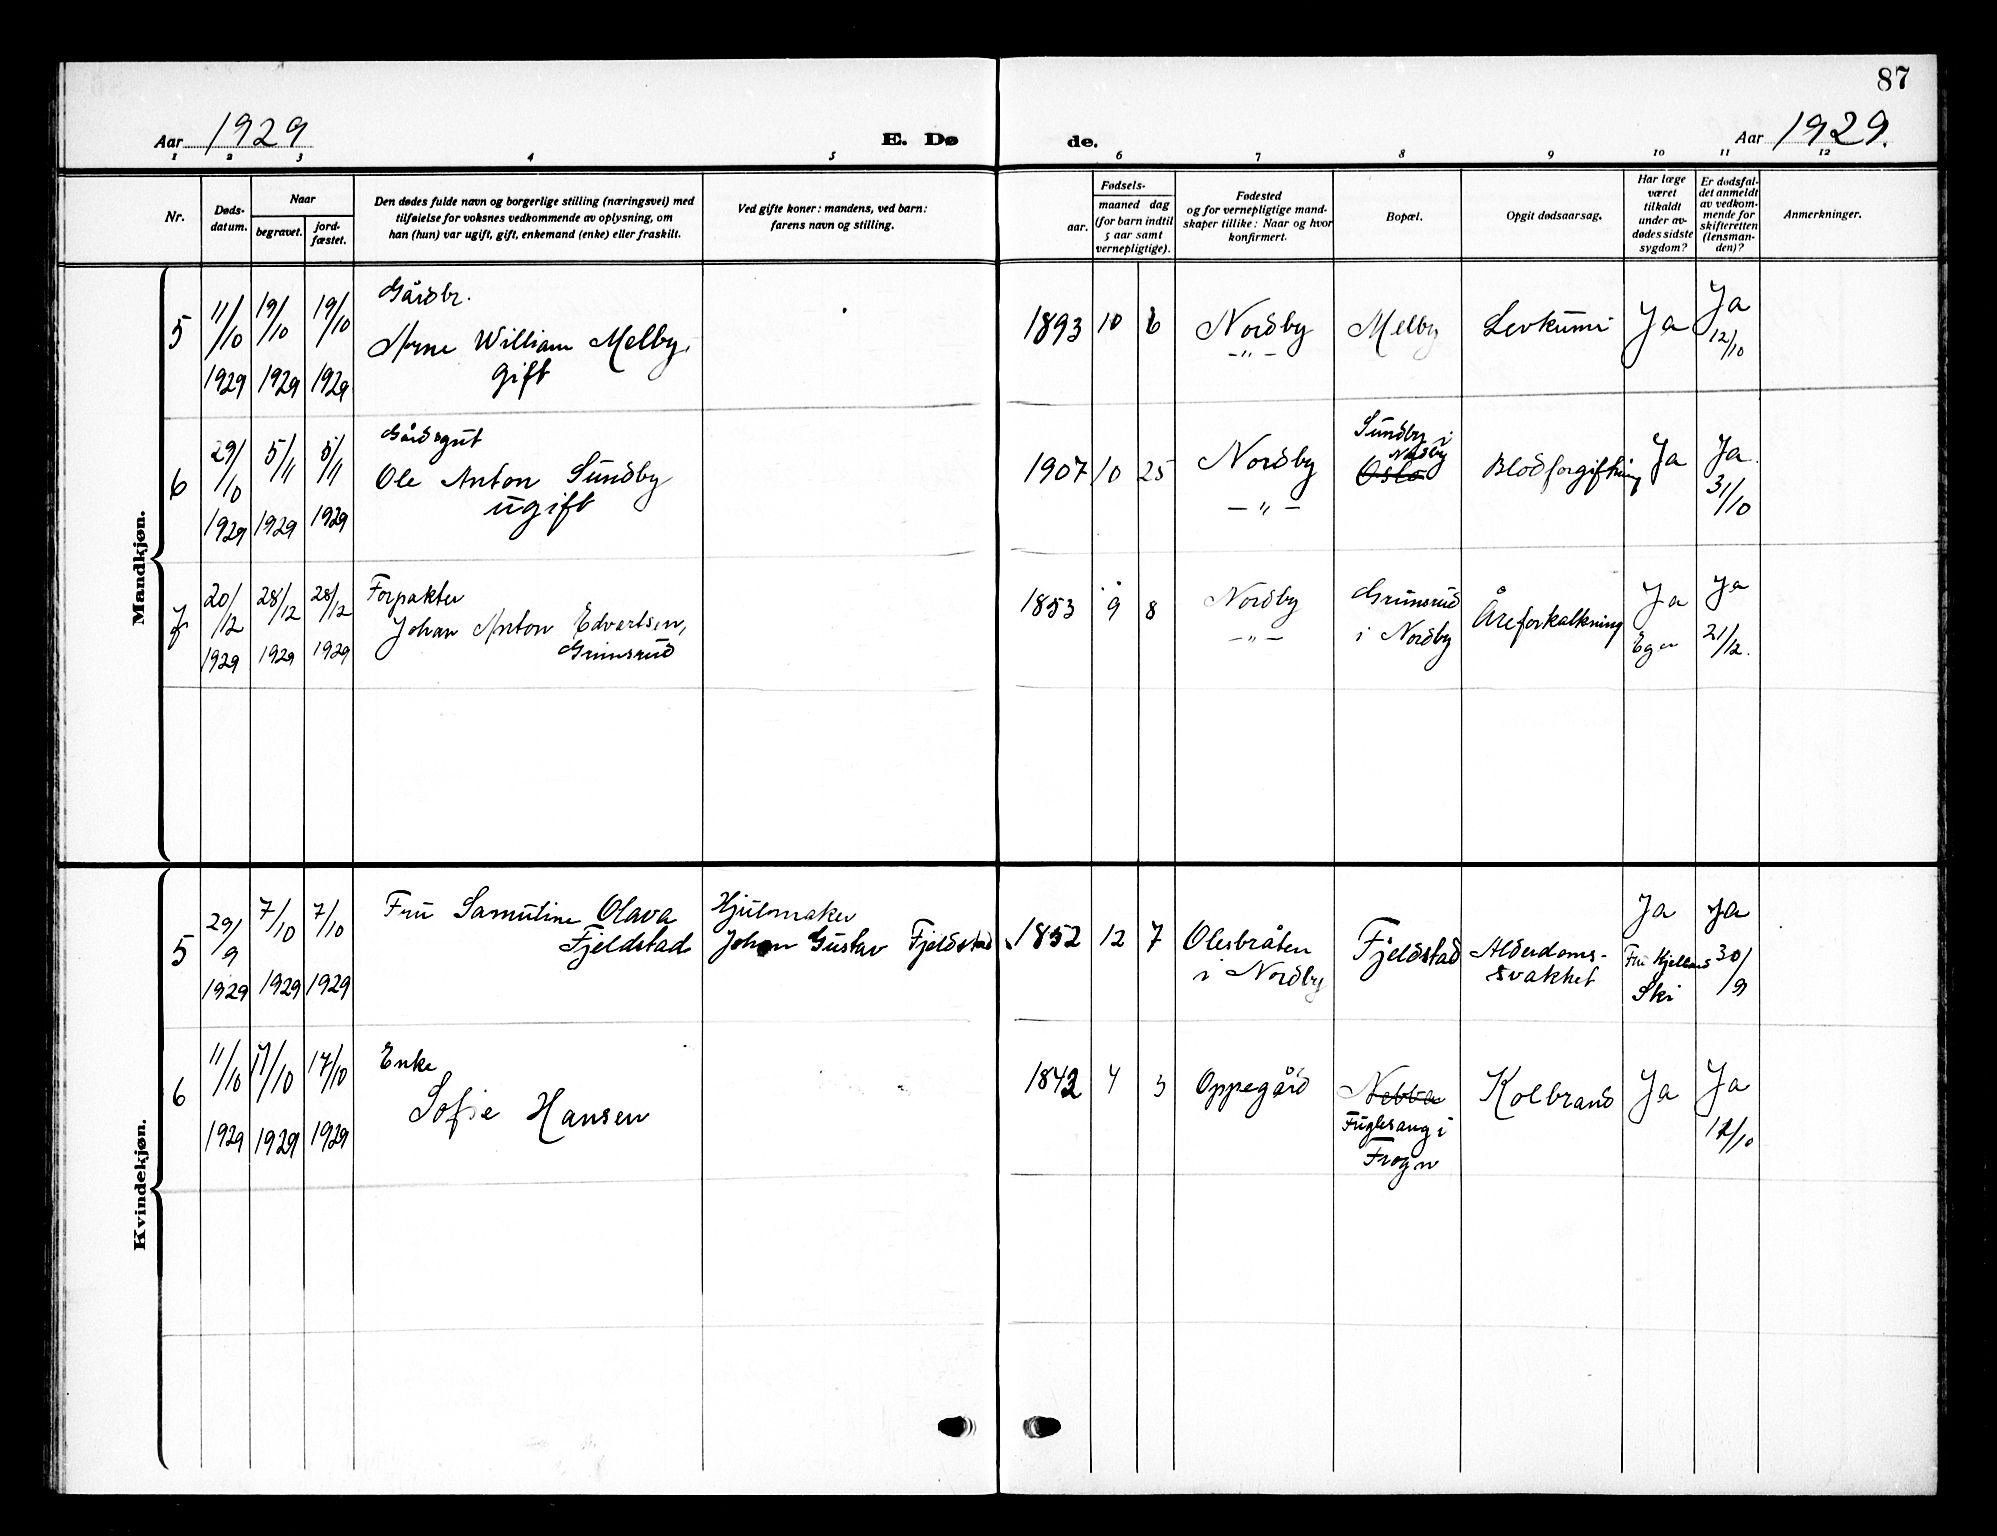 87
Aar 1929
E. Dø
de.
Aar 1929.
1 2 3 4 5 6 7 8 9 10 11 12
Nr.
Døds-
datum.
Naar
begravet.
jord-
fæstet.
Den dødes fulde navn og borgerlige stilling (næringsvei) med
tilføielse for voksnes vedkommende av oplysning, om
han (hun) var ugift, gift, enkemand (enke) eller fraskilt.
Ved gifte koner: mandens, ved barn:
farens navn og stilling.
Fødsels-
aar.
maaned dag
(for barn indtil
5 aar samt
vernepligtige).
Fødested
og for vernepligtige mand-
skaper tillike: Naar og hvor
konfirmert.
Bopæl.
Opgit dødsaarsag.
Har læge
været
tilkaldt
under av-
dødes sidste
sygdom?
Er dødsfal-
det anmeldt
av vedkom-
mende for
skifteretten
(lensman-
den)?
Anmerkninger.
Mandkjøn.
5
11/10
1929
19/10
1929
19/10
1929
Gårdbr.
Arne William Melby,
gift
1893 10 6
Nordby
—"—
Melby
Levkumi
Ja
Ja
12/10
6
29/10
1929
5/11
1929
5/11
1929
Gårdsgut
Ole Anton Sundby
ugift
1907 10 25
Nordby
—"—
Sundby i
Nordby
Oslo
Blodforgiftning
Ja
Ja
31/10
7
20/12
1929
28/12
1929
28/12
1929
Forpakter
Johan Anton Edvartsen,
Grimsrud
1853 9 8
Nordby
—"—
Grimsrud
i Nordby
Åreforkalkning
Ja
Ja
21/12.
Kvindekjøn.
5
29/9
1929
7/10
1929
7/10
1929
Fru Samuline Olava
Fjeldstad
Hjulmaker
Johan Gustav Fjeldstad
1852 12 7
Olesbråten
i Nordby
Fjeldstad
Alderdoms-
svakhet
Ja
Ski
Ja
30/9
6
11/10
1929
17/10
1929
17/10
1929
Enke
Sofie Hansen
1842 4 3
Oppegård
Nebba
Fuglesang i
Frogn
Kolbrand
Ja
Ja
12/10